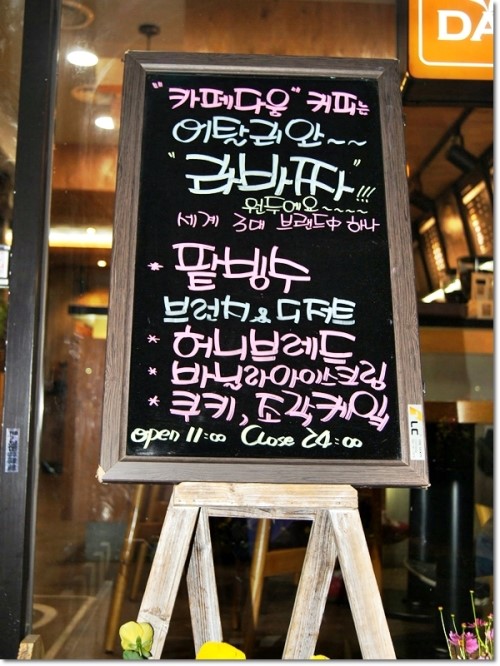 DA
"카페다움" 커피는
이탈리안~~
"라바짜"!!!
원두예요~~~~
세계 3대 브랜드中 하나
* 팥빙수
브런치 & 디저트
* 허니브레드
* 바닐라아이스크림
* 쿠키, 조각케익
open 11:00 Close 24:00
LC